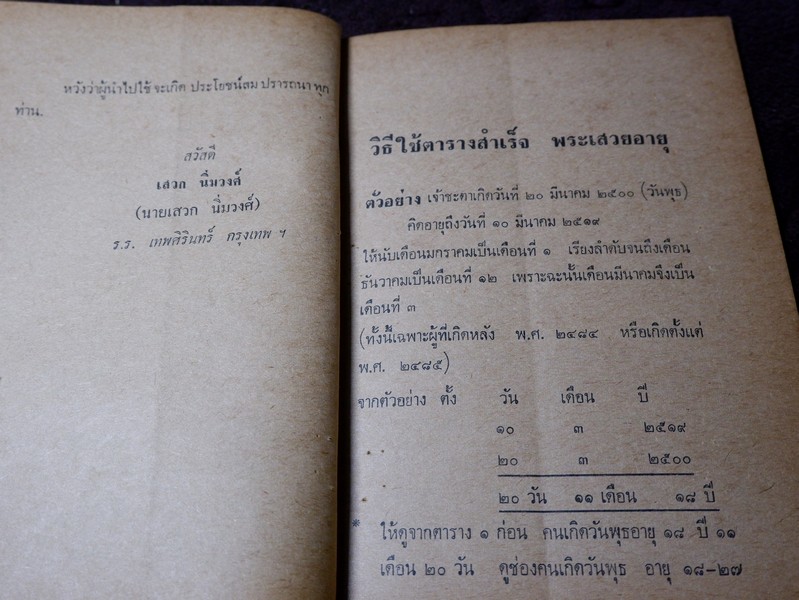 หวังว่าผู้นำไปใช้ จะเกิด ประโยชน์สม ปรารถนา ทุก
ท่าน.
สวัสดี
เสวก นิ่มวงศ์
(นายเสวก นิ่มวงศ์)
ร.ร. เทพศิรินทร์ กรุงเทพ ฯ
วิธีใช้ตารางสำเร็จ พระเสวยอายุ
ตัวอย่าง เจ้าชะตาเกิดวันที่ ๒๐ มีนาคม ๒๕๐๐ (วันพุธ)
คิดอายุถึงวันที่ ๑๐ มีนาคม ๒๕๑๙
ให้นับเดือนมกราคมเป็นเดือนที่ ๑ เรียงลำดับจนถึงเดือน
ธันวาคมเป็นเดือนที่ ๑๒ เพราะฉะนั้นเดือนมีนาคมจึงเป็น
เดือนที่ ๓
(ทั้งนี้เฉพาะผู้ที่เกิดหลัง พ.ศ. ๒๔๘๔ หรือเกิดตั้งแต่
พ.ศ. ๒๔๘๕)
จากตัวอย่าง ตั้ง วัน เดือน ปี
๑๐ ๓ ๒๕๑๙
๒๐ ๓ ๒๕๐๐
๒๐ วัน ๑๑ เดือน ๑๘ ปี
* ให้ดูจากตาราง ๑ ก่อน คนเกิดวันพุธอายุ ๑๘ ปี ๑๑
เดือน ๒๐ วัน ดูช่องคนเกิดวันพุธ อายุ ๑๘-๒๗